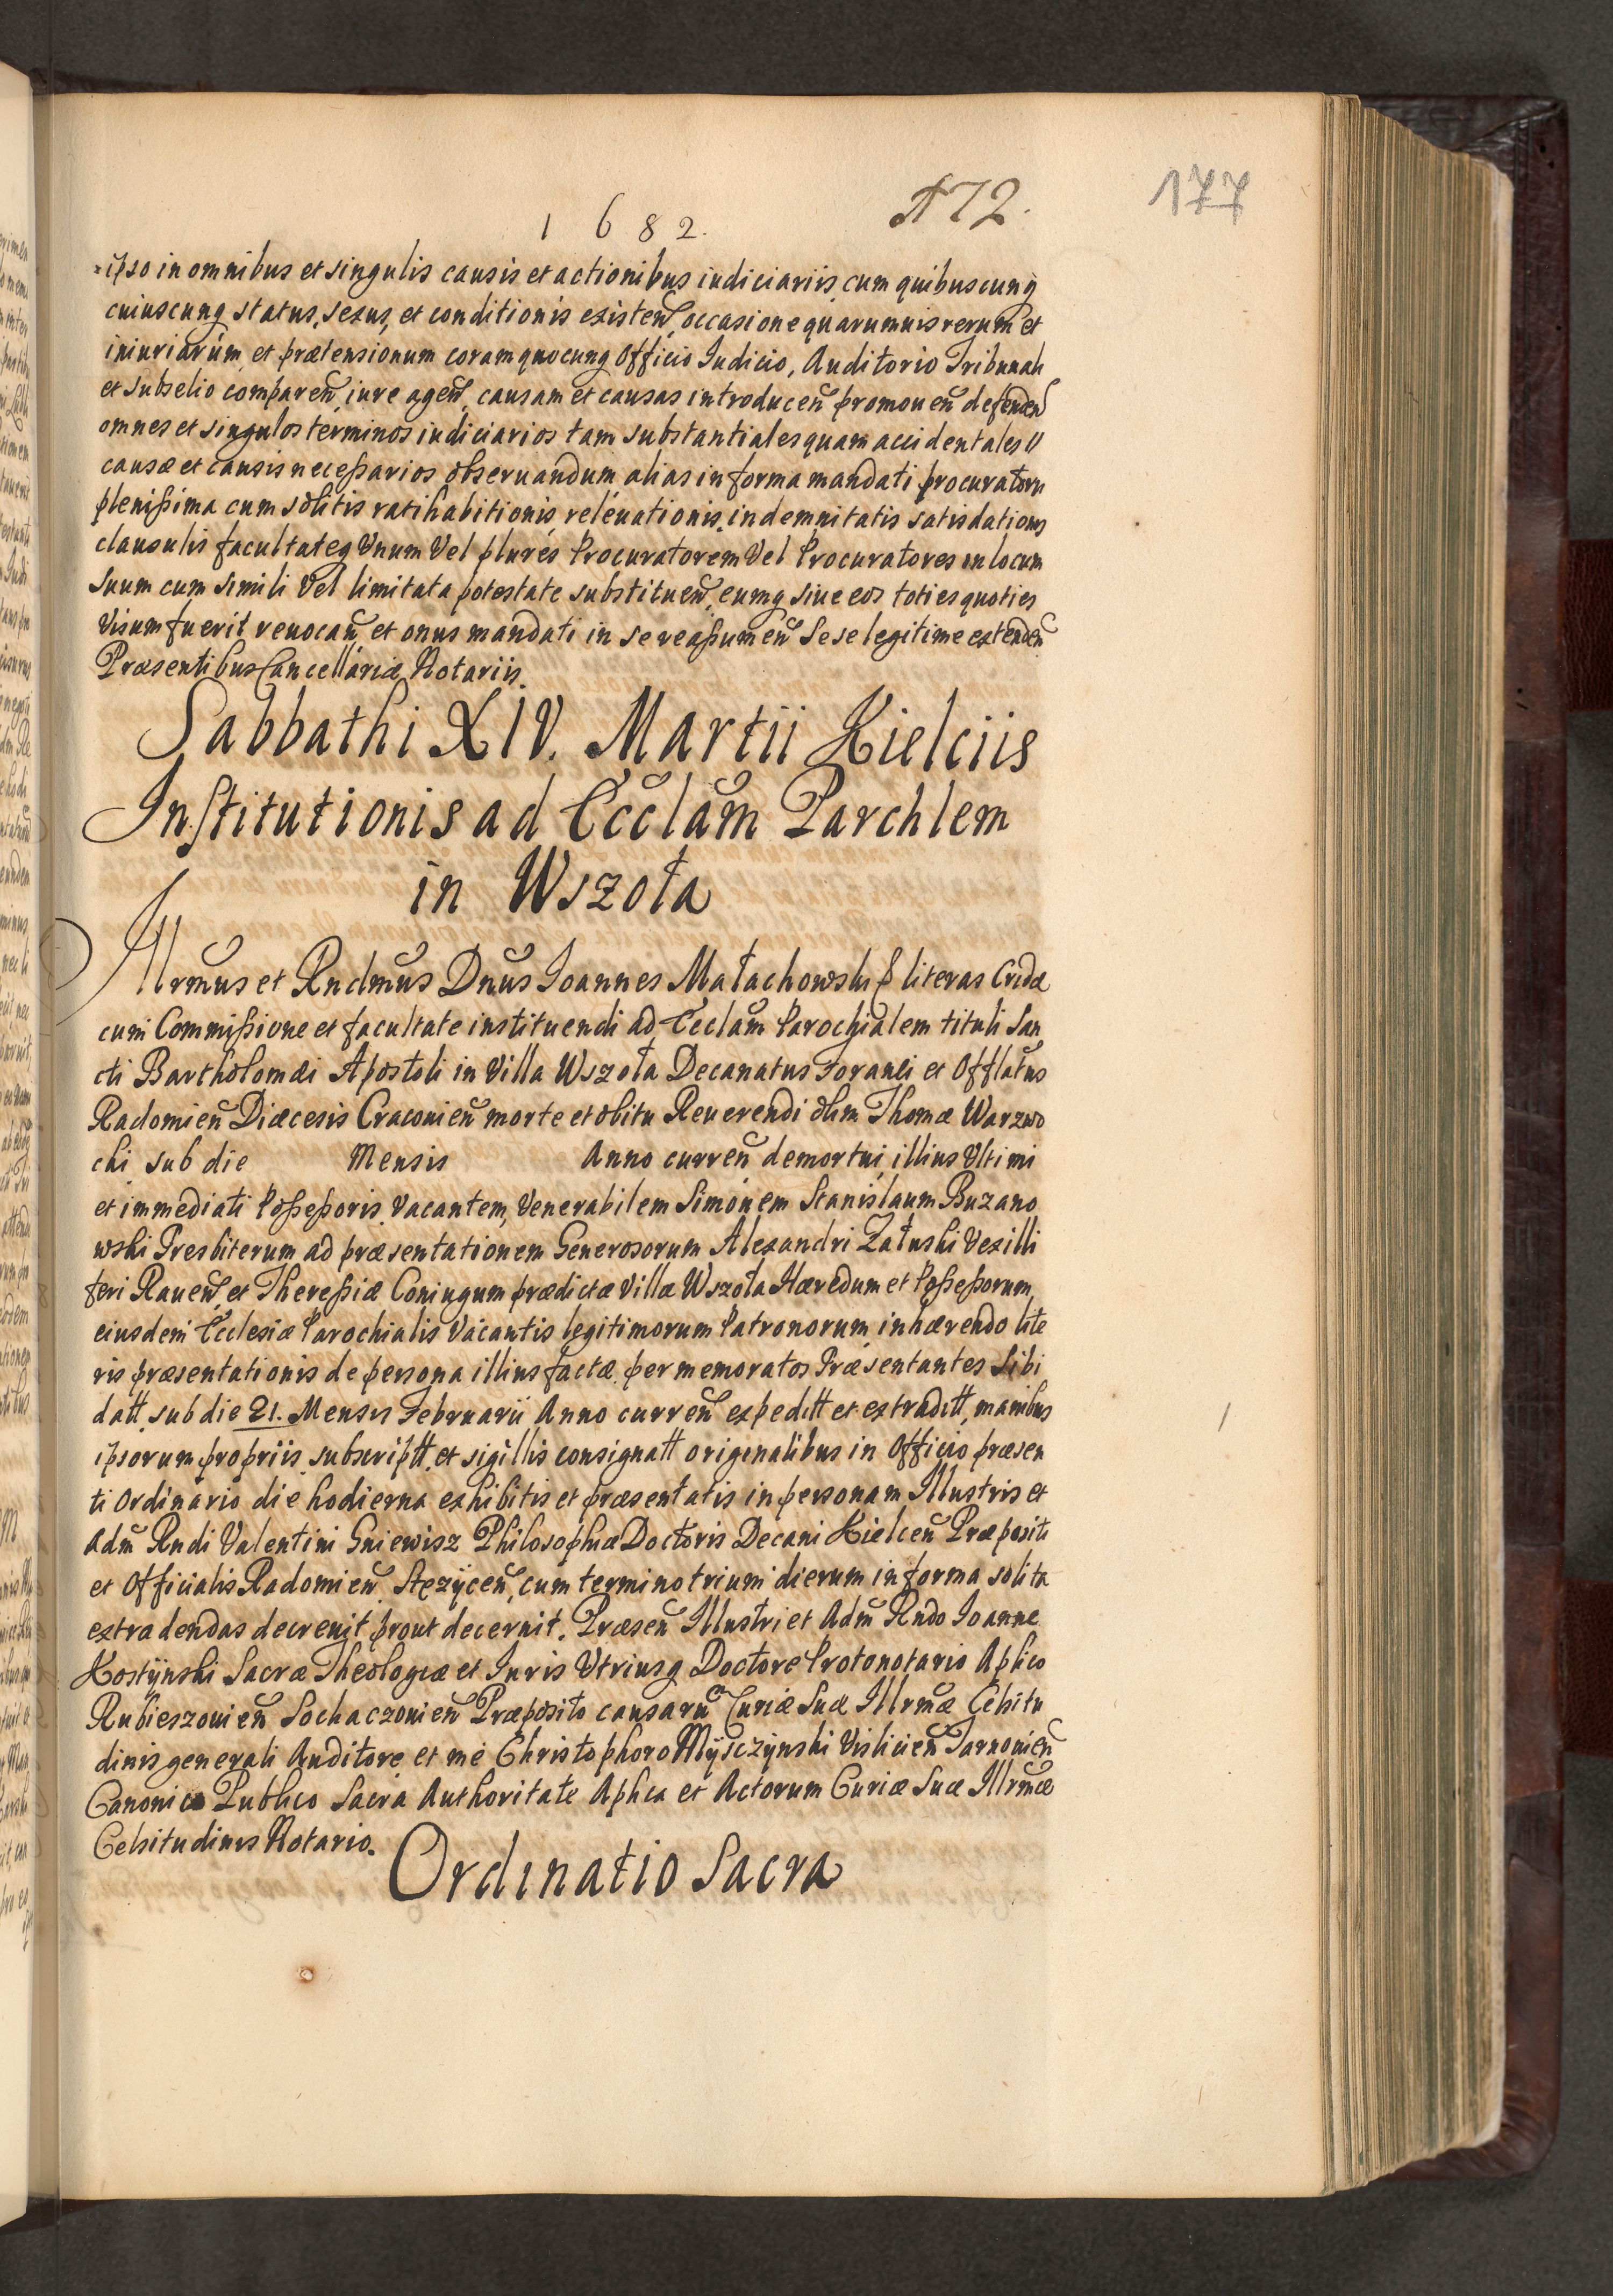 1682.
172.
177
ipso in omnibus et singulis causis et actionibus iudiciariis, cum quibuscunq
cuiuscunq status, sexus, et conditionis existen̄, occasione quarumuis rerum et
iniuriarum, et prætensionum coram quocunq Officio Iudicio, Auditorio Tribunali
et subselio comparen̄, iure agen̄, causam et causas introducen̄ promouen̄ defenden̄
omnes et singulos terminos iudiciarios tam substantiales quam accidentales
causæ et causis neceßarios obseruandum alias in forma mandati procuratorii
plenißima cum solitis ratihabitionis releuationis indemnitatis satisdationis
clausulis facultateq Vnum Vel plures Procuratorem Vel Procuratores in locum
suum cum simili Vel limitata potestate substituen̄, eumq siue eos toties quoties
Visum fuerit reuocan̄, et onus mandati in se reaßumen̄ Sese legitime extenden̄
Præsentibus Cancellariæ Notariis.
Sabbathi XIV. Martii Kielciis
Institutionis ad Eccl̄am Parchlem
in Wszoła
Illr̄mus et Rndm̄us Dn̄us Ioannes Małachowski literas Cridæ
cum Commißione et facultate instituendi ad Eccl̄am Parochialem tituli San
cti Bartholomæi Apostoli in Villa Wszoła Decanatus Foranei et Offl̄atus
Radomien̄ Diæcesis Cracouien̄ morte et obitu Reuerendi olim Thomæ Warzwo
chi sub die Mensis Anno curren̄ demortui, illius Vltimi
et immediati Poßeßoris Vacantem, Venerabilem Simonem Stanislaum Buzano
wski Presbiterum ad præsentationem Generosorum Alexandri Załuski Vexilli
feri Rauen̄, et Thereßiæ Coniugum prædictæ Villæ Wszoła Hæredum et Poßeßorum,
eiusdem Ecclesiæ Parochialis Vacantis legitimorum Patronorum, inhærendo lite
ris præsentationis de persona illius factæ per memoratos Præsentantes Sibi
datt. sub die 21. Mensis Februarii Anno curren̄ expeditt et extraditt, manibus
ipsorum propriis subscriptt, et sigillis consignatt originalibus in Officio præsen
ti Ordinario die hodierna exhibitis et præsentatis in personam Illustris et
Adm̄ Rndi Valentini Gniewisz Philosophiæ Doctoris Decani Kielcen̄ Præpositi
et Officialis Radomien̄ Stęzÿcen̄, cum termino trium dierum in forma solita
extradendas decreuit prout decernit. Præsen̄ Illustri et Adm̄ Rndo Ioanne
Kostÿnski Sacræ Theologiæ et Iuris Vtriusq Doctore Protonotario Aplico
Rubieszouien̄ Sochaczouien̄ Præposito causarū Curiæ Suæ Illr̄mæ Celsitu
dinis generali Auditore et me Christophoro Mÿsczÿnski Vislicien̄ Tarnouien̄
Canonico Publico Sacra Authoritate Aplica et Actorum Curiæ Suæ Illr̄mæ
Celsitudinis Notario.
Ordinatio Sacra